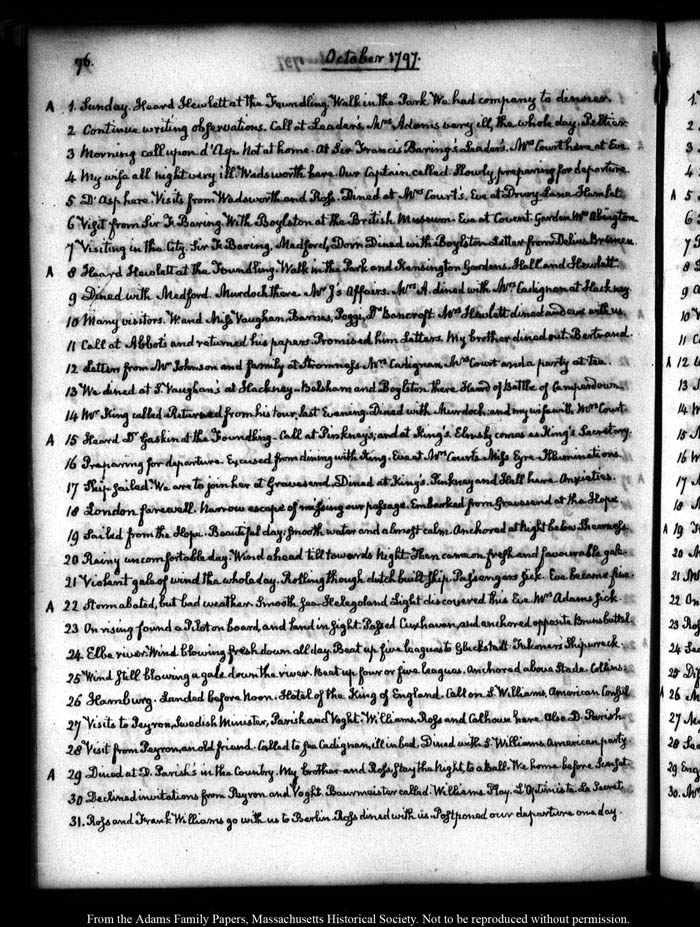 96.
October 1797.
A 1. Sunday. Heard Hewlett at the Foundling. Walk in the Park. We had company to dinner.
2 Continue writing observations. Call at Leader's. Mrs Adams very ill, the whole day. Peltier.
3 Morning call upon d'Asp. Not at home. At Sir Francis Baring's. Leader's. Mrs Court here at Eve.
4 My wife all night very ill. Wadsworth here. Our Captain called. Slowly preparing for departure.
5 D'Asp here. Visits from Wadsworth and Ross. Dined at Mrs Court's. Eve at Drury Lane Hamlet.
6 Visit from Sir F. Baring. With Boylston at the British Museum. Eve at Covent Garden Mrs Abington
7 Visiting in the City. Sir F. Baring, Medford, Dorn. Dined with Boylston. Letter from Delius Bremen
A 8 Heard Hewlett at the Foundling. Walk in the Park and Kensington Gardens. Hall and Hewlett.
9 Dined with Medford. Murdoch there. Mr J's Affairs. Mrs A. dined with Mrs Cadignan at Hackney
10 Many visitors. W. and Miss Vaughan, Barnes, Poggi, Dr Bancroft. Mrs Hewlett dined and eve with us.
11 Call at Abbots and returned his papers. Promised him Letters. My brother dined out. Bertrand.
12 Letters from Mr Johnson and family at Stromness. Mrs Cadignan. Mrs Court and a party at tea.
13 We dined at S. Vaughan's at Hackney. Belsham and Boylston there. Heard of Battle of Camperdown
14 Mr King called. Returned from his tour, last Evening. Dined with Murdoch, and my wife with Mrs Court.
A 15 Heard Dr Gaskin at the Foundling. Call at Pinkney's, and at King's. Elmsly comes as King's Secretary.
16 Preparing for departure. Excused from dining with King. Eve at Mrs Court's. Miss Eyre. Illuminations.
17 Ship sailed. We are to join her at Gravesend. Dined at King's. Pinkney and Hall here. Anxieties.
18 London farewell. Narrow escape of missing our passage. Embarked from Gravesend at the Hope
19 Sailed from the Hope. Beautiful day, smooth water and almost calm. Anchored at Night below Sheerness
20 Rainy uncomfortable day. Wind ahead till towards Night. Then came on fresh and favourable gale.
21 Violent gale of wind the whole day. Rolling though dutch built ship. Passengers sick. Eve became fine.
A 22 Storm abated, but bad weather. Smooth sea. Helegoland Light discovered this Eve. Mrs Adams sick.
23 On rising found a Pilot on board, and land in sight. Passed Cuxhaven, and anchored opposite Brunsbuttel
24 Elbe river. Wind blowing fresh down all day. Beat up five leagues to Gluckstadt. Falconers Shipwreck.
25 Wind still blowing a gale down the river. Beat up four or five leagues. Anchored above Stade. Collins.
26 Hamburg. Landed before Noon. Hotel of the King of England. Call on S. Williams, American Consul
27 Visits to Peyron, Swedish Minister, Parish and Voght. Williams, Ross and Calhoun here. Also D. Parish
28 Visit from Peyron, an old friend. Called to see Cadignan, ill in bed. Dined with S. Williams. American party.
A 29 Dined at D. Parish's in the Country. My brother and Ross, stay the night, to a ball. We home before Sunset.
30 Declined invitations from Peyron and Voght. Baurmeister called. Williams. Play. L'Optimiste. Le Secret.
31. Ross and Frank Williams go with us to Berlin. Ross dined with us. Postponed our departure one day.
From the Adams Family Papers, Massachusetts Historical Society. Not to be reproduced without permission.